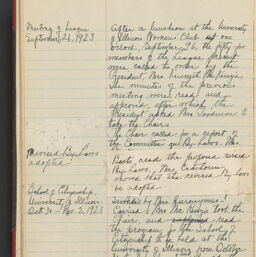 Meeting of League
September 26, 1923
After a luncheon at the University
of Illinois Womens' Club at one
o'clock, September 26, the fifty-five
members of the League present
were called to order by the
President, Mrs.
The minutes of the previous
meeting were read and
approved, after which the
President asked Mrs. Goodwin to
take the Chair.
The Chair called for a report of
the Committee on By Laws. Mrs.
Revised By Laws
adopted
read the proposed revised
By Laws. Mrs.
moved that the revised By Laws
be adopted
School of Citizenship
University of Illinois.
Oct. 31 - Nov. 2, 1923
Seconded by Mrs. Hieronymus -
Carried. Mrs. took the
Chair, and read
the program for the School of
Citizenship to be held at the
University of Illinois from October